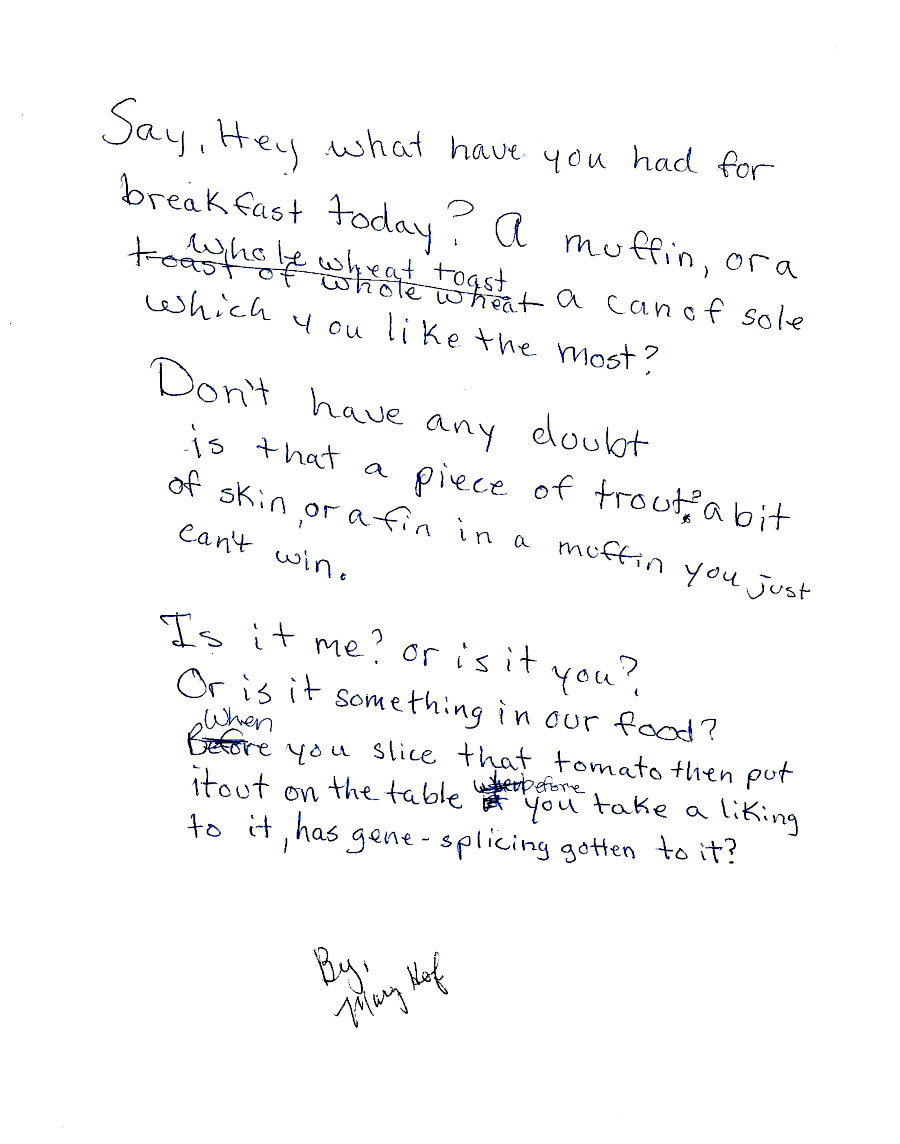 Say, Hey what have you had for
breakfast today? A muffin, or a
Whole wheat toast
toast of whole wheat a can of sole
which you like the most?
Don't have any doubt
is that a piece of trout? a bit
of skin, or a fin in a muffin you just
can't win.
Is it me? or is it you?
Or is it something in our food?
When
Before you slice that tomato then put
it out on the table before you take a liking
to it, has gene-splicing gotten to it?
By,
Mary Hof